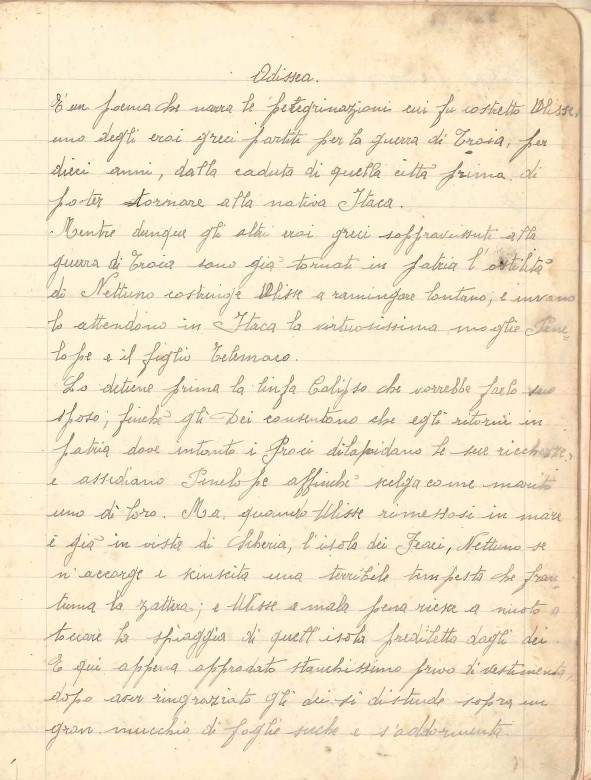 Odissea.
È un poema che narra le peregrinazioni cui fu costretto Ulisse,
uno degli eroi greci partiti per la guerra di Troia, per
dieci anni, dalla caduta di quella città prima di
poter tornare alla nativa Itaca.
Mentre dunque gli altri eroi greci sopravvissuti alla
guerra di Troia sono già tornati in patria l'ostilità
di Nettuno costringe Ulisse a ramingare lontano; e invano
lo attendono in Itaca la virtuosissima moglie Pene-
lope e il figlio Telemaco.
Lo detiene prima la linfa Calipso che vorrebbe farlo suo
sposo; finchè gli Dei consentono che egli ritorni in
patria dove intanto i Proci dilapidano le sue ricchezze,
e assediano Penelope affinchè scelga come marito
uno di loro. Ma quando Ulisse rimessosi in mare
è già in vista di Scheria, l'isola dei Feaci, Nettuno se
n'accorge e suscita una terribile tempesta che fran-
tuma la zattera; e Ulisse a mala pena riesce a nuoto a
toccare la spiaggia di quell'isola prediletta dagli dei
E qui appena approdato stanchissimo privo di vestimenta,
dopo aver ringraziato gli dei si distende sopra un
gran mucchio di foglie secche e s'addormenta.